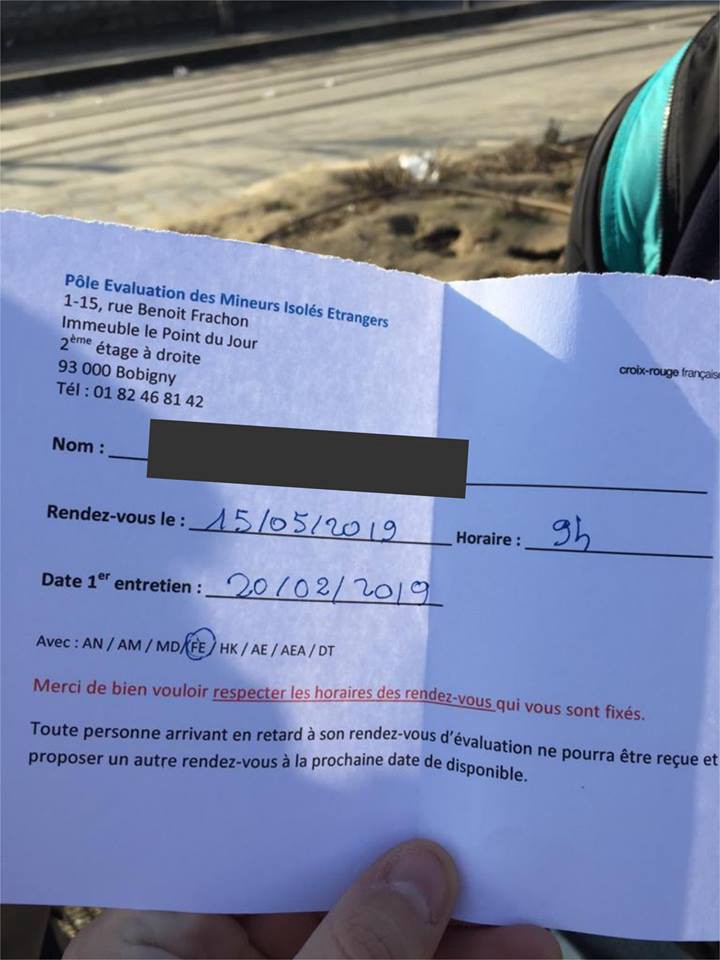 Pôle Evaluation des Mineurs Isolés Etrangers
1-15, rue Benoit Frachon
Immeuble le Point du Jour
2ème étage à droite
93 000 Bobigny
Tél : 01 82 46 81 42
croix-rouge française
Nom :
Rendez-vous le : 15/05/2019 Horaire : 9h
Date 1er entretien : 20/02/2019
Avec : AN / AM / MD/ FE / HK / AE / AEA / DT
Merci de bien vouloir respecter les horaires des rendez-vous qui vous sont fixés.
Toute personne arrivant en retard à son rendez-vous d'évaluation ne pourra être reçue et
proposer un autre rendez-vous à la prochaine date de disponible.